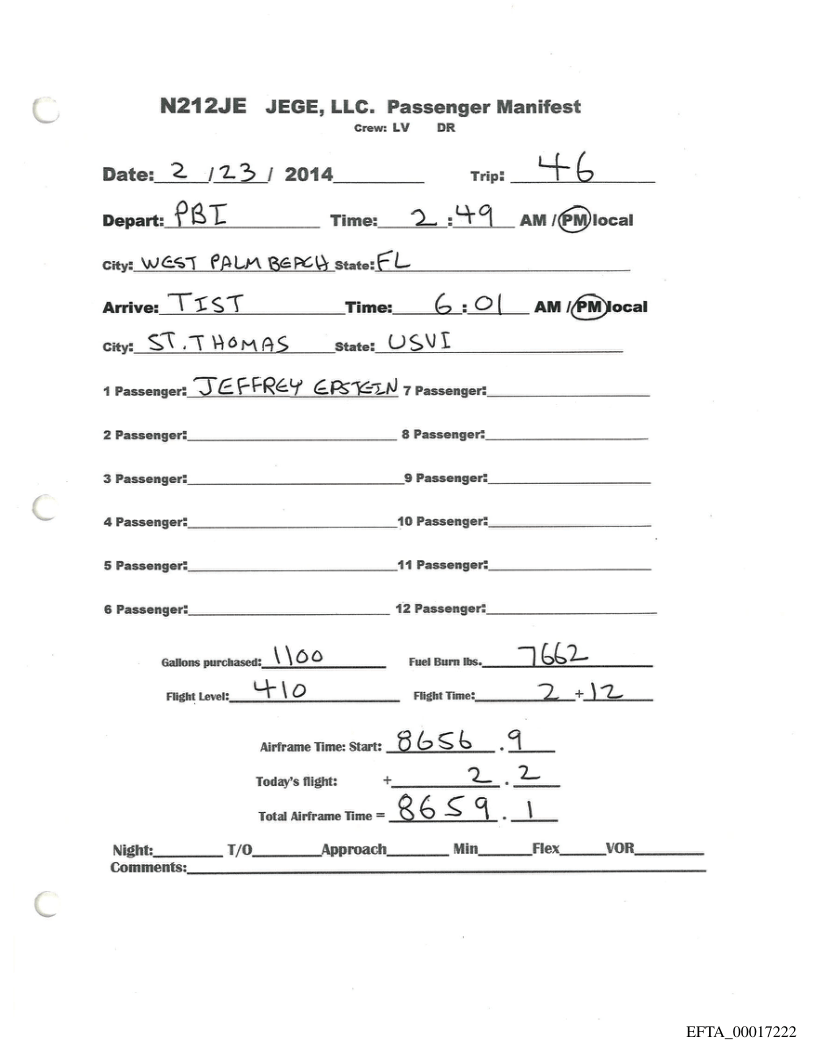 N212JE JEGE, LLC. Passenger Manifest
Crew: LV DR
Date: 2 / 23 / 2014 Trip: 46
Depart: PBI Time: 2 : 49 AM / PM local
City: WEST PALM BEACH State: FL
Arrive: TIST Time: 6 : 01 AM / PM local
City: ST. THOMAS State: USVI
1 Passenger: JEFFREY EPSTEIN 7 Passenger:
2 Passenger: 8 Passenger:
3 Passenger: 9 Passenger:
4 Passenger: 10 Passenger:
5 Passenger: 11 Passenger:
6 Passenger: 12 Passenger:
Gallons purchased: 1100 Fuel Burn lbs. 7662
Flight Level: 410 Flight Time: 2 + 12
Airframe Time: Start: 8656 . 9
Today's flight: + 2 . 2
Total Airframe Time = 8659 . 1
Night: T/O Approach Min Flex VOR
Comments:
EFTA_00017222